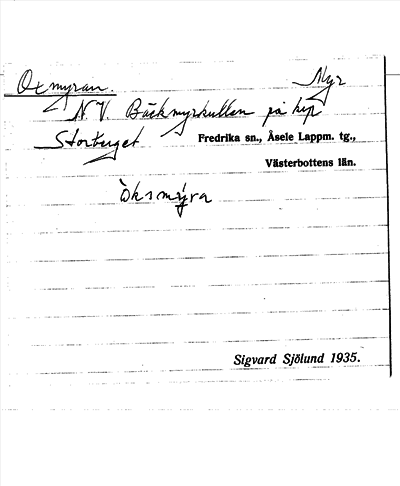 Oxmyran. Myr
N.V. Bäckmyrkullen på krp
Storberget Fredrika sn., Åsele Lappm. tg.,
Västerbottens län.
òksmýra
Sigvard Sjölund 1935.